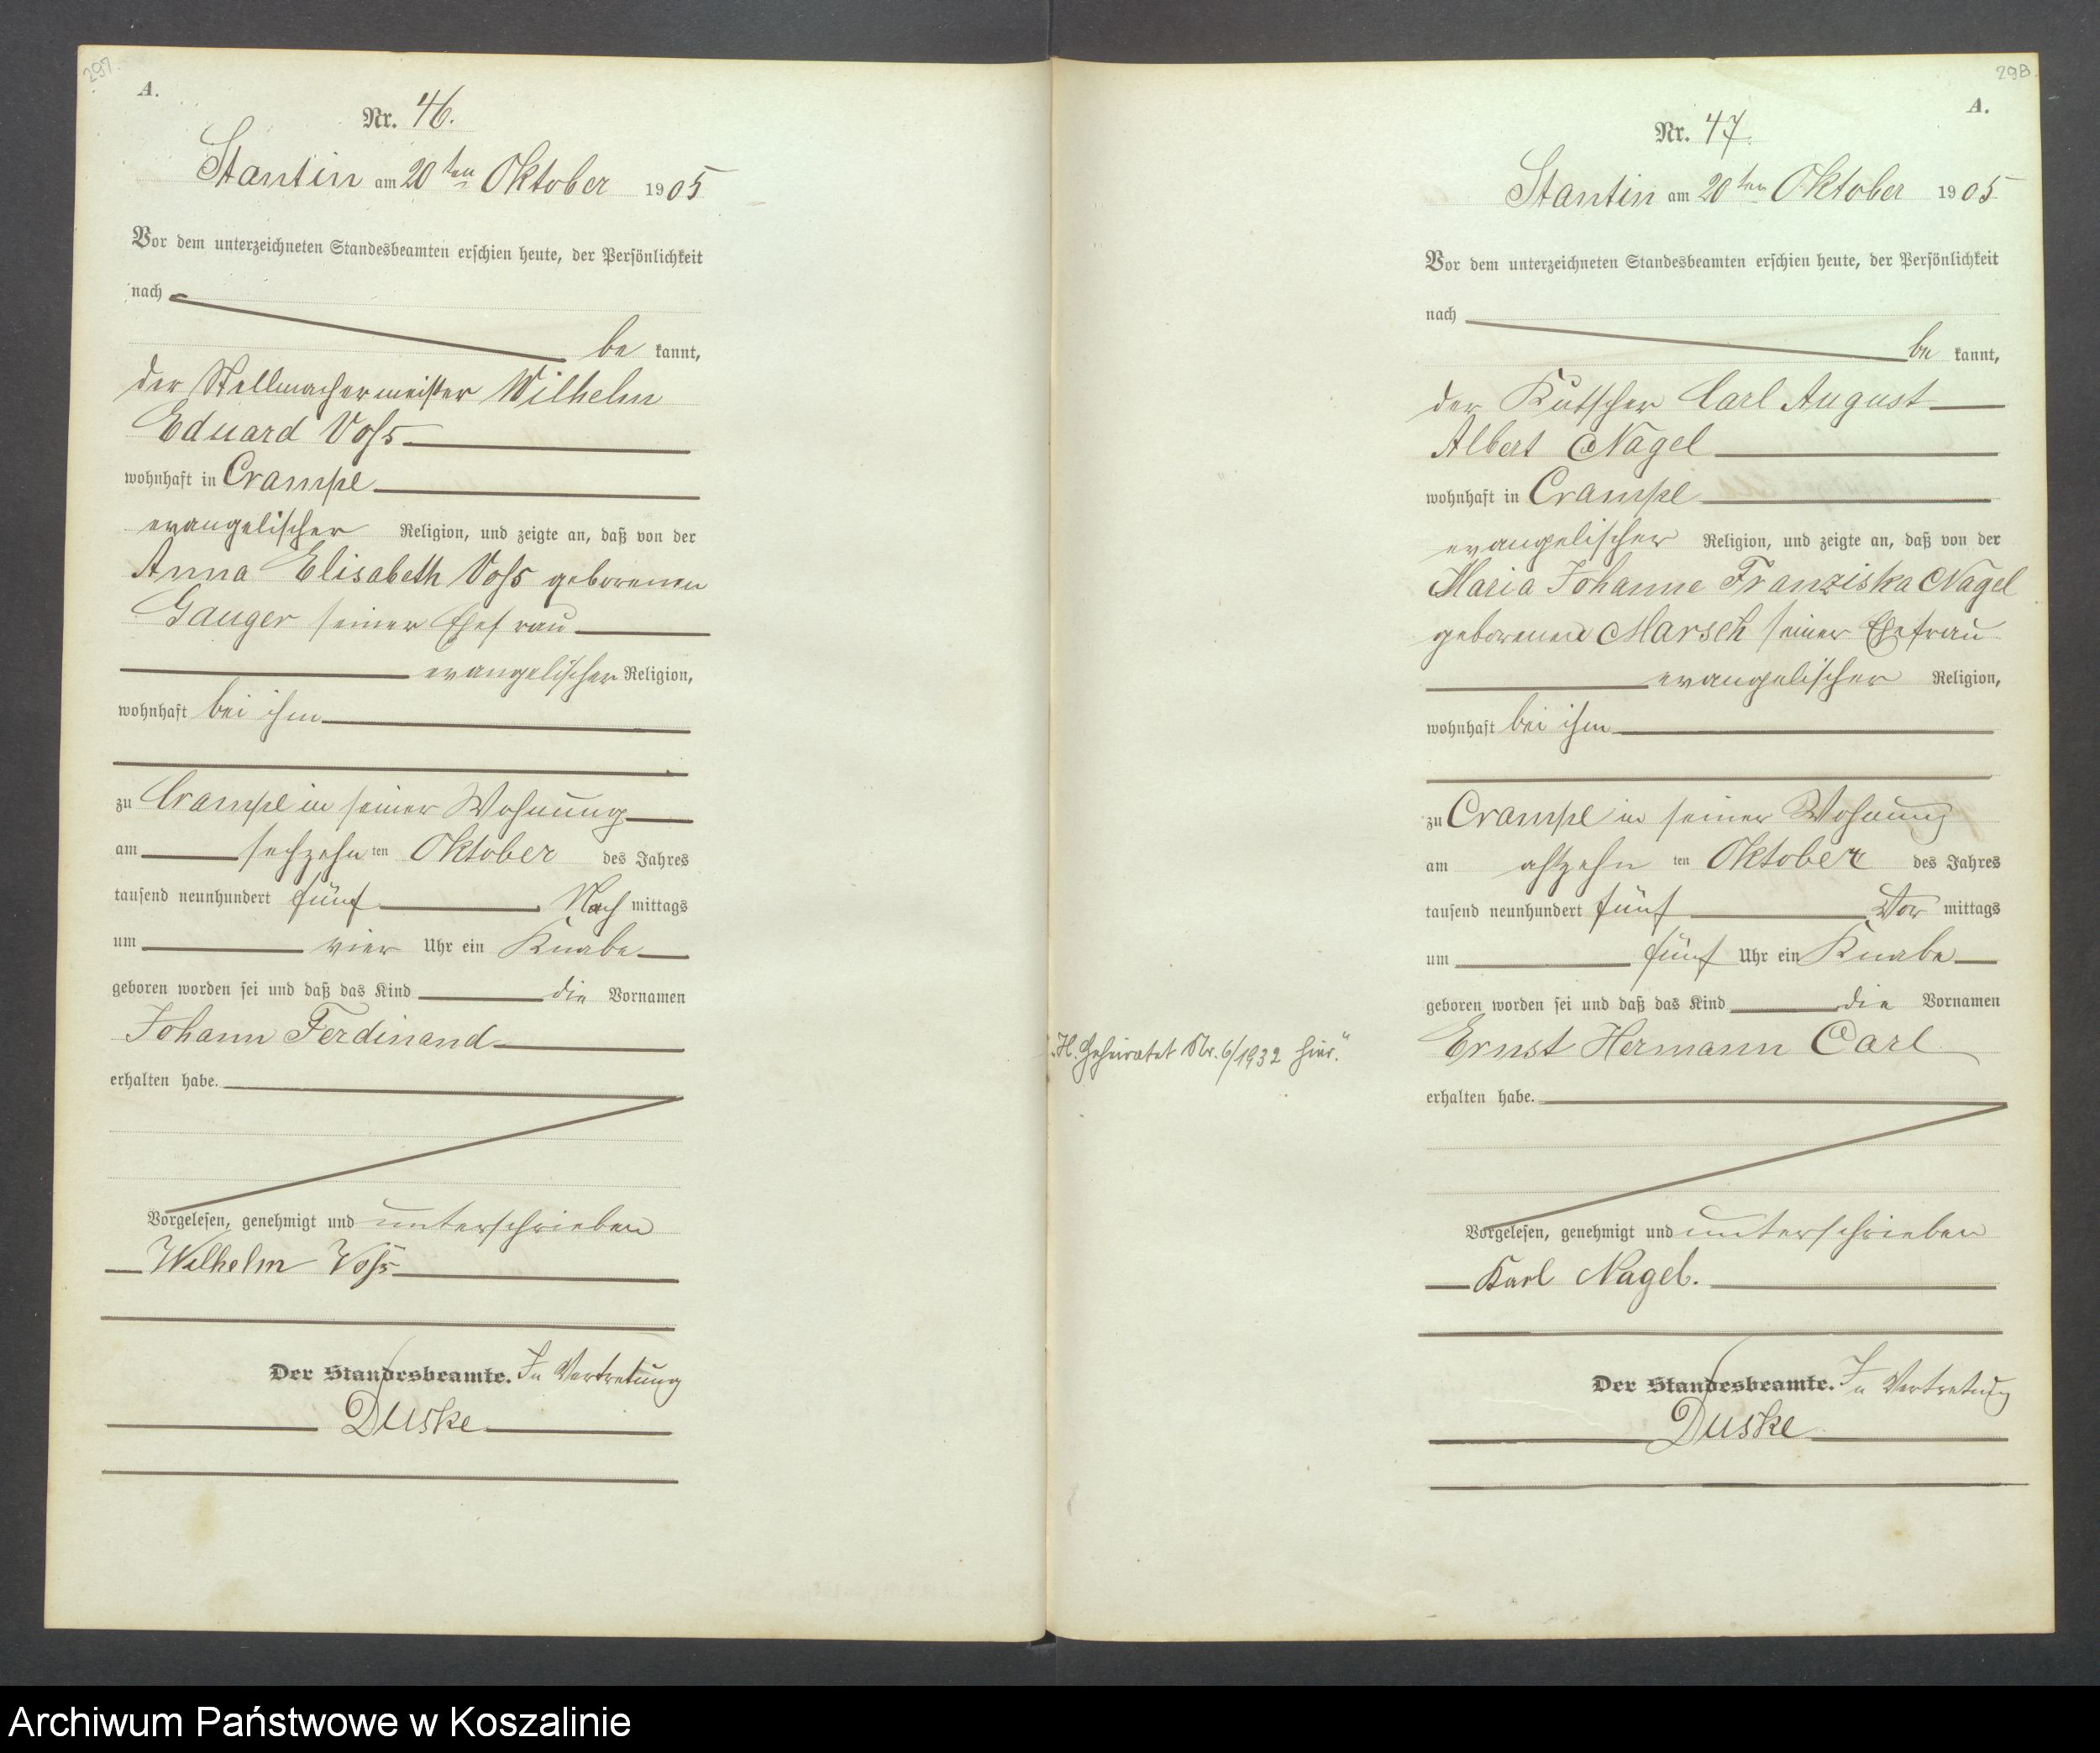 297.
A.
Nr. 46.
Stantin am 20ten Oktober 1905
Vor dem unterzeichneten Standesbeamten erschien heute, der Persönlichkeit
nach
be kannt,
der Stellmachermeister Wilhelm
Eduard Voß
wohnhaft in Crampe
evangelischer Religion, und zeigte an, daß von der
Anna Elisabeth Voß geborenen
Gauger seiner Ehefrau
evangelischer Religion,
wohnhaft bei ihm
zu Crampe in seiner Wohnung
am sechzehn ten Oktober des Jahres
tausend neunhundert fünf Nach mittags
um vier Uhr ein Knabe
geboren worden sei und daß das Kind die Vornamen
Johann Ferdinand
erhalten habe.
Vorgelesen, genehmigt und unterschrieben
Wilhelm Voß
Der Standesbeamte. In Vertretung
Duske
298.
A.
Nr. 47.
Stantin am 20ten Oktober 1905
Vor dem unterzeichneten Standesbeamten erschien heute, der Persönlichkeit
nach
be kannt,
der Kutscher Carl August
Albert Nagel
wohnhaft in Crampe
evangelischer Religion, und zeigte an, daß von der
Maria Johanne Franziska Nagel
geborenen Marsch seiner Ehefrau
evangelischer Religion,
wohnhaft bei ihm
zu Crampe in seiner Wohnung
am achtzehn ten Oktober des Jahres
tausend neunhundert fünf Vor mittags
um fünf Uhr ein Knabe
geboren worden sei und daß das Kind die Vornamen
„H. Geheiratet Nr. 6/1932 hier.“
Ernst Hermann Carl
erhalten habe.
Vorgelesen, genehmigt und unterschrieben
Karl Nagel.
Der Standesbeamte. In Vertretung
Duske
Archiwum Państwowe w Koszalinie